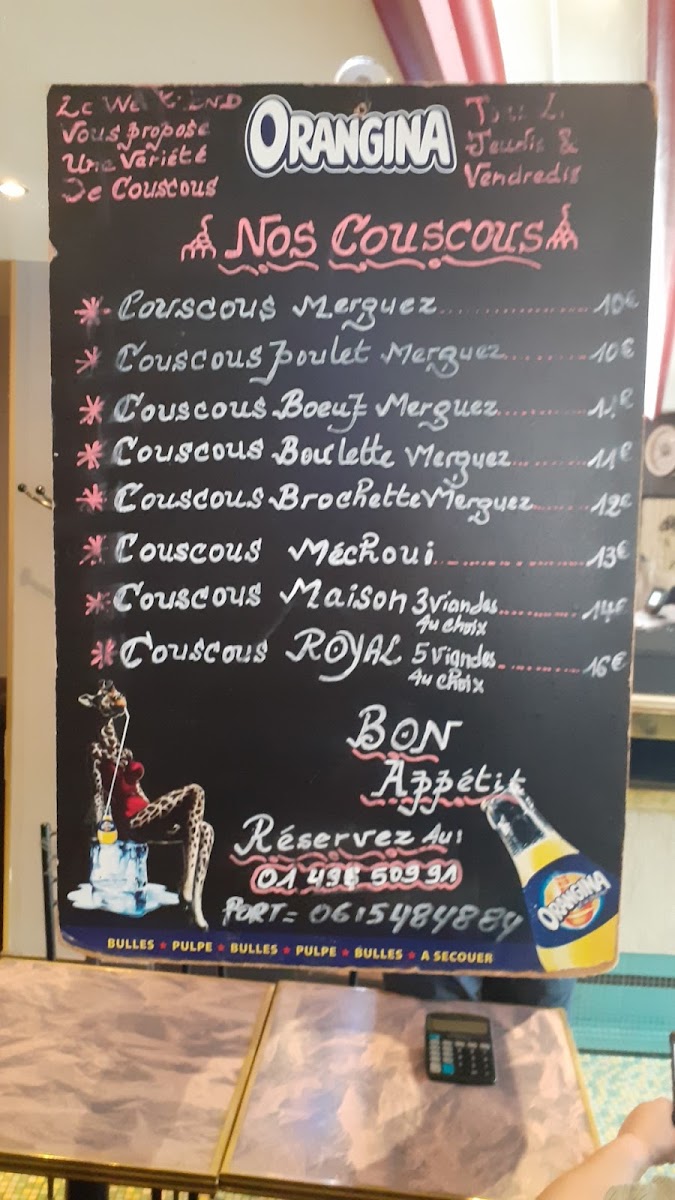 Le Week-END
Vous propose
Une Variété
De Couscous
ORANGINA
Jeudis &
Vendredis
Nos Couscous
Couscous Merguez 10€
Couscous poulet Merguez 10€
Couscous Boeuf Merguez
Couscous Boulette Merguez 11€
Couscous Brochette Merguez 12€
Couscous Méchoui 13€
Couscous Maison 3 Viandes 14€
Au choix
Couscous ROYAL 5 Viandes 16€
Au choix
BON
Appétit
Réservez Au:
PORT= 0615484884
ORANGINA
BULLES ★ PULPE ★ BULLES ★ PULPE ★ BULLES ★ A SECOUER